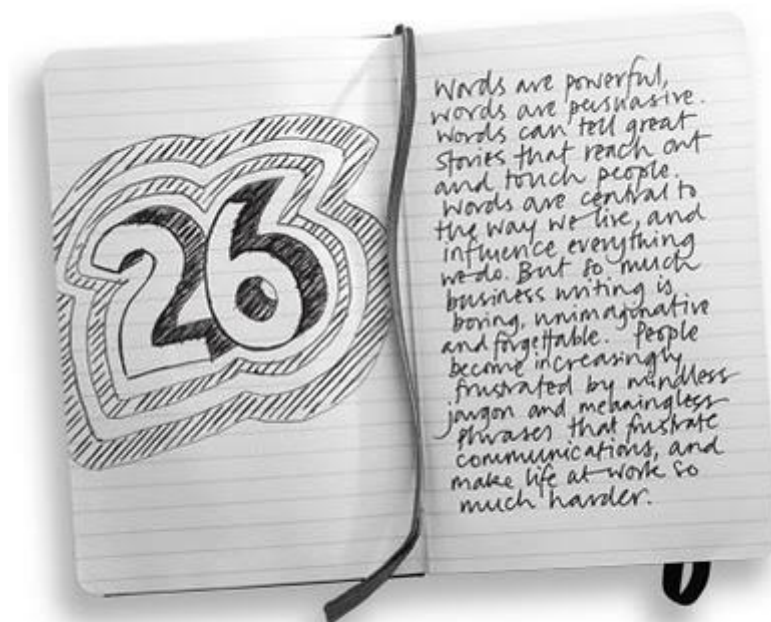 26
Words are powerful,
words are persuasive.
Words can tell great
stories that reach out
and touch people.
Words are central to
the way we live, and
influence everything
we do. But so much
business writing is
boring, unimaginative
and forgettable. People
become increasingly
frustrated by mindless
jargon and meaningless
phrases that frustrate
communications, and
make life at work so
much harder.